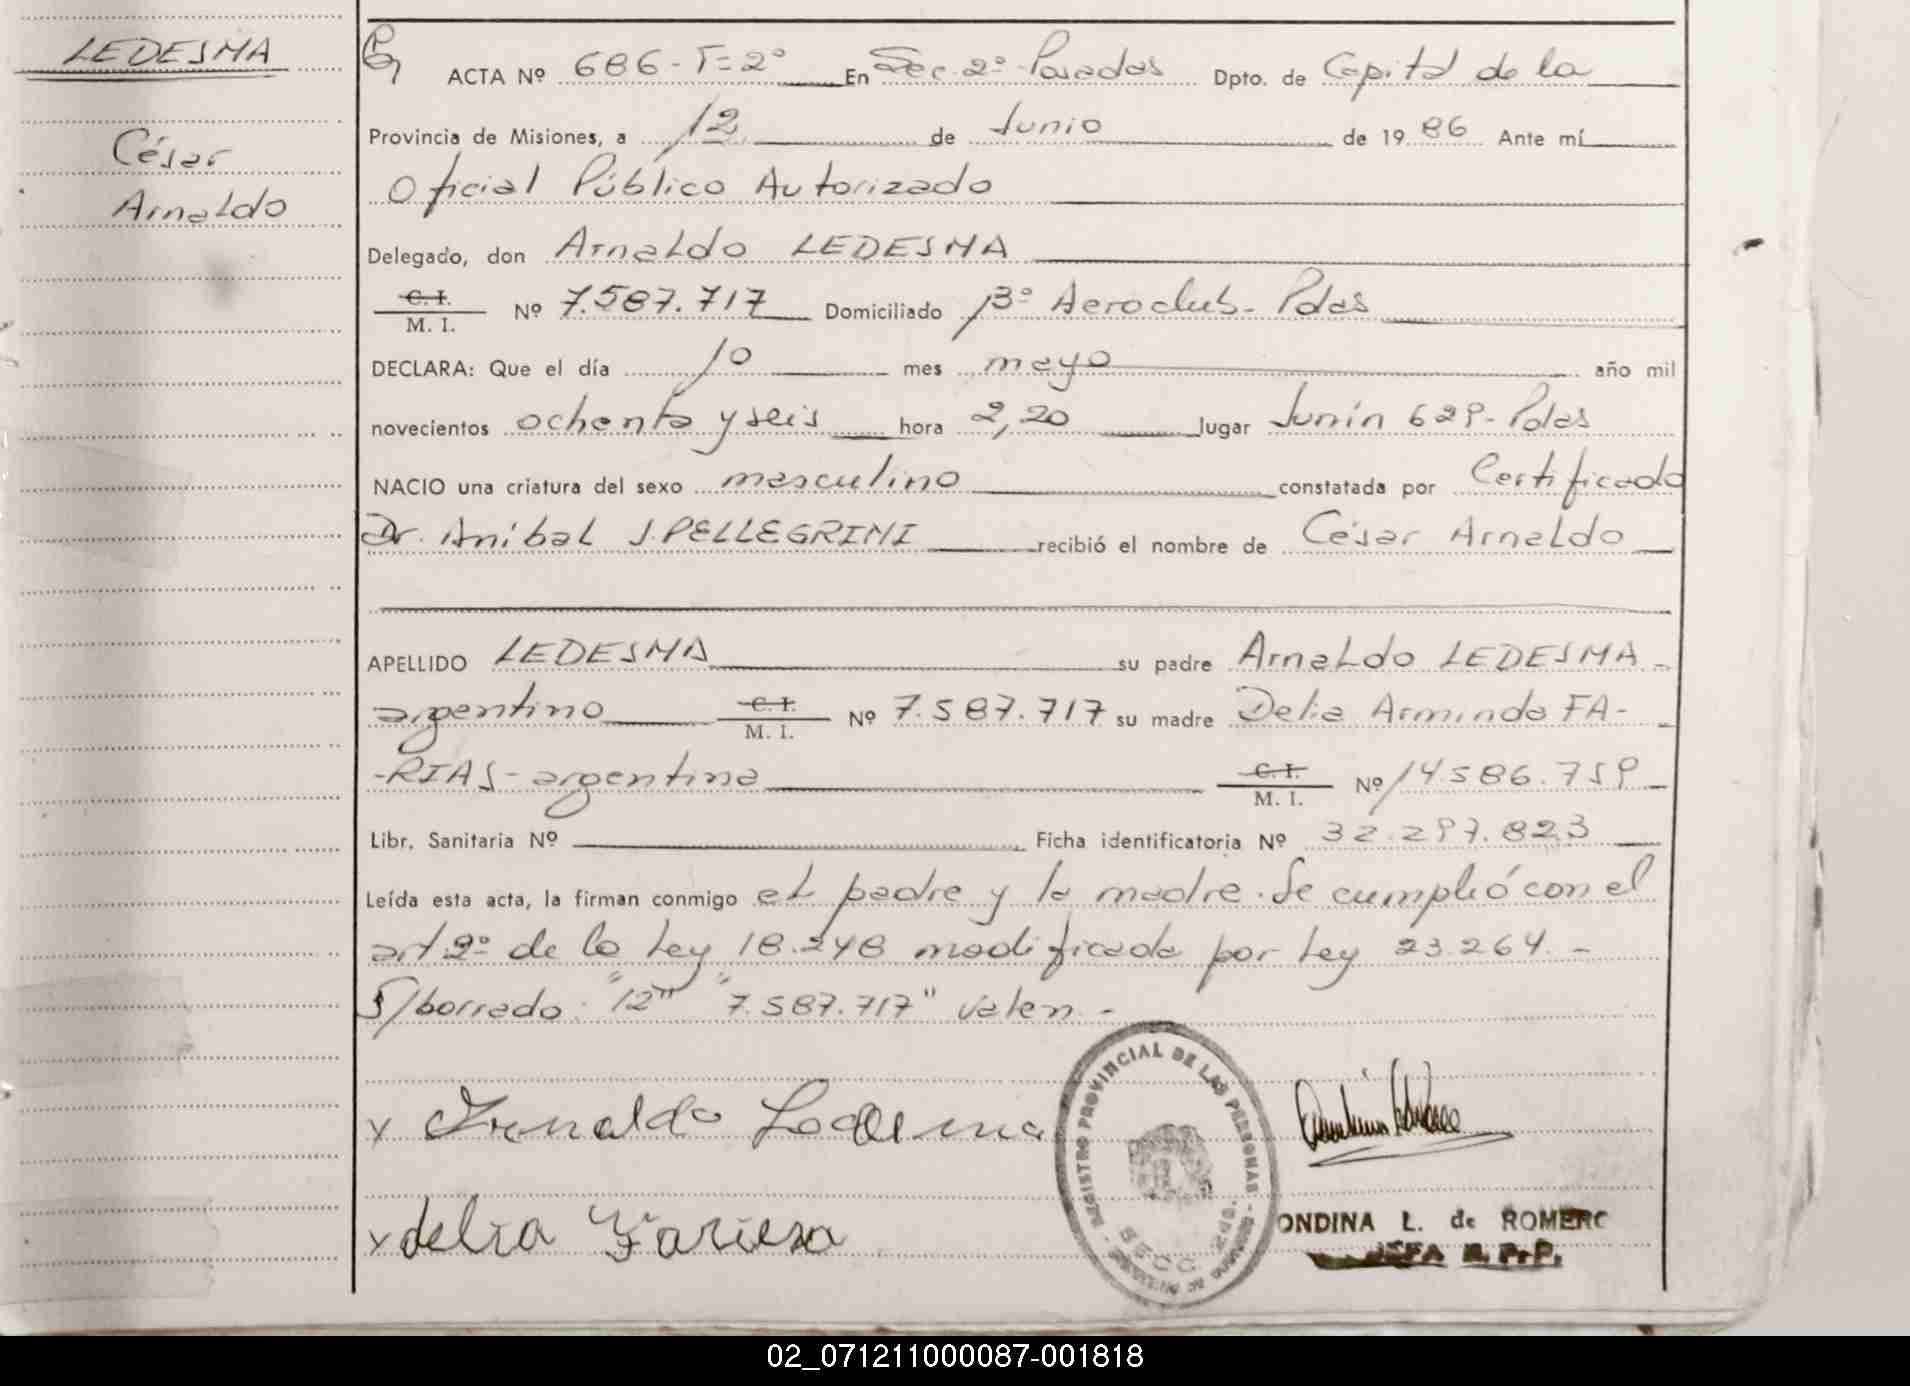 LEDESMA
César
Arnaldo
ACTA Nº 686 - T=2° En Sec. 2° Posadas Dpto. de Capital de la
Provincia de Misiones, a 12 de Junio de 1986 Ante mí
Oficial Público Autorizado
Delegado, don Arnaldo LEDESMA
C. I.
M. I. Nº 7.587.717 Domiciliado B° Aeroclub - Pdas
DECLARA: Que el día 10 mes mayo año mil
novecientos ochenta y seis hora 2,20 lugar Junín 629 - Pdas
NACIO una criatura del sexo masculino constatada por Certificado
Dr. Aníbal J. PELLEGRINI recibió el nombre de César Arnaldo
APELLIDO LEDESMA su padre Arnaldo LEDESMA -
argentino C. I. M. I. Nº 7.587.717 su madre Delia Arminda FA-
-RIAS - argentina C. I. M. I. Nº 14.586.759
Libr. Sanitaria Nº Ficha identificatoria Nº 32.297.823
Leída esta acta, la firman conmigo el padre y la madre. Se cumplió con el
art. 2° de la Ley 18.248 modificada por Ley 23.264. -
S/borrado: "12" "7.587.717" valen. -
x Arnaldo Ledesma
x delia Fariasa
REGISTRO PROVINCIAL DE LAS PERSONAS
SECC. 2da.
ONDINA L. de ROMERO
JEFA R. P. P.
02_071211000087-001818